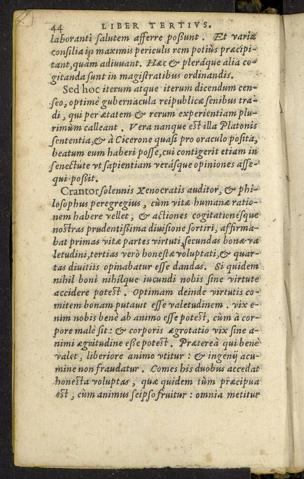 44 LIBER TERTIVS.
laboranti salutem afferre poßunt. Et variæ
consilia ip maximis periculis rem potiùs præcipi-
tant, quàm adiuuant. Hæc & pleráque alia co-
gitanda sunt in magistratibus ordinandis.
Sed hoc iterum atque iterum dicendum cen-
seo, optimè gubernacula reipublicæ senibus tra-
di, qui per ætatem & rerum experientiam plu-
rimùm calleant. Vera nanque est illa Platonis
sententia, & à Cicerone quasi pro oraculo posita,
beatum eum haberi posse, cui contigerit etiam in
senectute vt sapientiam verásque opiniones asse-
qui possit.
Crantor solennis Xenocratis auditor, & phi-
losophus peregregius, cùm vitæ humanæ ratio-
nem habere vellet, & actiones cogitationésque
nostras prudentissima diuisione sortiri, affirma-
bat primas vitæ partes virtuti, secundas bonæ va
letudini, tertias verò honestæ voluptati, & quar-
tas diuitiis opinabatur esse dandas. Si quidem
nihil boni nihilque iucundi nobis sine virtute
accidere potest. Optimam deinde virtutis co-
mitem bonam putauit esse valetudinem. vix e-
nim nobis benè ab animo esse potest, cùm à cor-
pore malè sit: & corporis ægrotatio vix sine a-
nimi ægritudine eße potest. Prætereà qui benè
valet, liberiore animo vtitur: & ingenij acu-
mine non fraudatur. Comes his duobus accedat
honesta voluptas, quæ quidem tùm præcipua
est, cùm animus seipso fruitur: omnia metitur